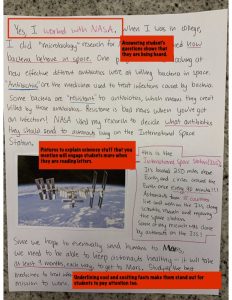 Yes, I worked with NASA. When I was in college,
I did "microbiology" research for
how
bacteria behave in space. One
looking at
how effective different antibiotics were at killing bacteria in space.
Antibiotics are the medicines used to treat infections caused by bacteria.
Some bacteria are "resistant" to antibiotics which means they aren't
killed by those antibiotics. Resistance is bad news when you've got
an infection! NASA used my research to decide what antibiotics
they should send to astronauts living on the International Space
Station.
Answering student's
questions shows that
they are being heard.
Pictures to explain science stuff that you
mention will engage students more when
they are reading letters.
This is the
International Space Station (ISS)
It's around 250 miles above
Earth and circles around the
Earth once every 90 minutes!!!
Astronauts from countries
live and work on the ISS doing
scientific research and repairing
the space station.
done by
astronauts on the ISS!
Since we hope to eventually send humans to Mars,
we need to be able to keep astronauts healthy - it will take
at least 9 months, each way, to get to Mars. Studying the best
medicines to treat
mission to work.
Underlining cool and exciting facts make them stand out for
students to pay attention too.